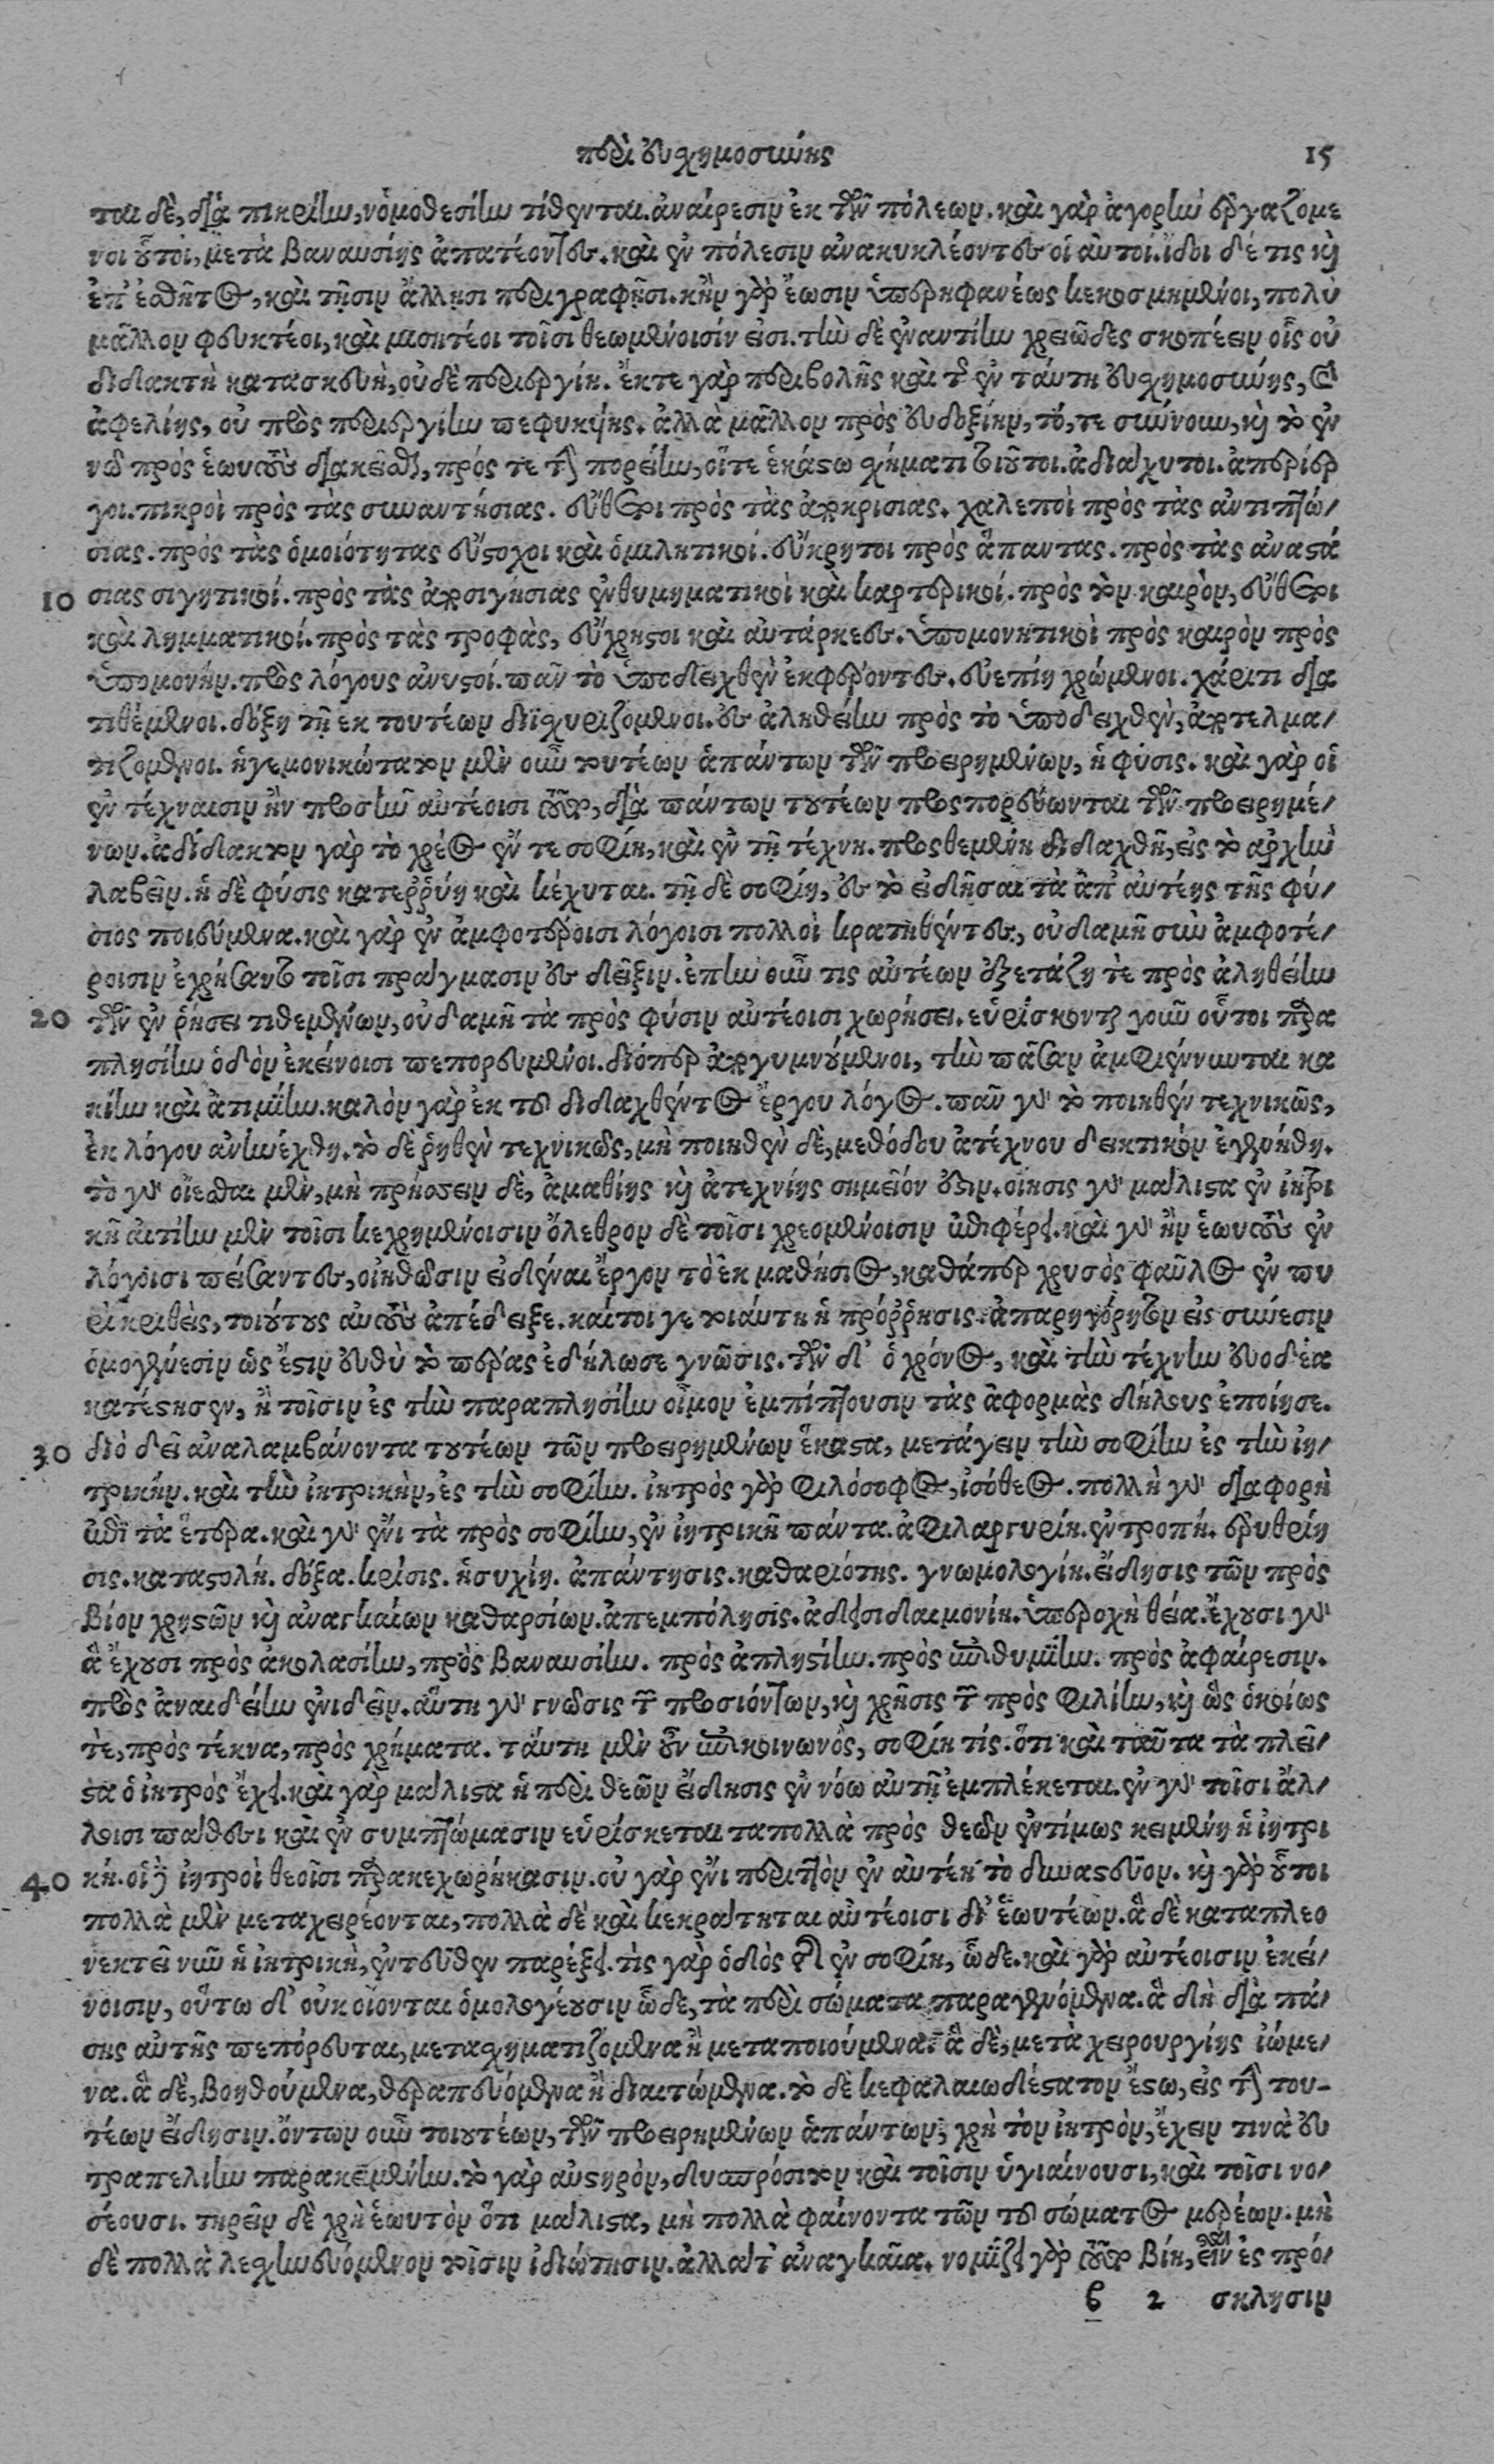 περὶ εὐσχημοσύνης 15
ται δὲ, διὰ πικρίην, νομοθεσίην τίθενται ἀναίρεσιν ἐκ τῶν πόλεων. καὶ γὰρ ἀγορὴν ἐργαζόμε
νοι οὗτοι, μετὰ βαναυσίης ἀπατέοντες. καὶ ἐν πόλεσιν ἀνακυκλέοντες οἱ αὐτοί. ἴδοι δέ τις καὶ
ἐπ' ἐσθῆτος, καὶ τῇσιν ἄλλησι περιγραφῇσι. κἢν γὰρ ἔωσιν ὑπερηφανέως κεκοσμημένοι, πολὺ
μᾶλλον φευκτέοι, καὶ μισητέοι τοῖσι θεωμένοισίν εἰσι. τὴν δὲ ἐναντίην χρειῶδες σκοπέειν οἷς οὐ
διδακτὴ κατασκευὴ, οὐδὲ περιεργίη. ἔκ τε γὰρ περιβολῆς καὶ τῆς ἐν ταύτῃ εὐσχημοσύνης, καὶ
ἀφελίης, οὐ πρὸς περιεργίην πεφυκυίης. ἀλλὰ μᾶλλον πρὸς εὐδοξίην, τό, τε σύννουν, καὶ τὸ ἐν
νῷ πρὸς ἑωυτοὺς διακεῖσθαι, πρός τε τὴν πορείην, οἵ τε ἑκάστῳ σχήματι τοιοῦτοι. ἀδιάχυτοι. ἀπερίερ
γοι. πικροὶ πρὸς τὰς συναντήσιας. εὔθετοι πρὸς τὰς ἀποκρισιας. χαλεποὶ πρὸς τὰς ἀντιπτώ/
σιας. πρὸς τὰς ὁμοιότητας εὔστοχοι καὶ ὁμιλητικοί. εὔκρητοι πρὸς ἅπαντας. πρὸς τὰς ἀναστά
10 σιας σιγητικοί. πρὸς τὰς ἀποσιγήσιας ἐνθυμηματικοὶ καὶ καρτερικοί. πρὸς τὸν καιρὸν, εὔθετοι
καὶ λημματικοί. πρὸς τὰς τροφὰς, εὔχρηστοι καὶ αὐτάρκεες. ὑπομονητικοὶ πρὸς καιρὸν πρὸς
ὑπομονήν. πρὸς λόγους ἀνυστοί. πᾶν τὸ ὑποδειχθὲν ἐκφέροντες. εὐεπίῃ χρώμενοι. χάριτι δια
τιθέμενοι. δόξῃ τῇ ἐκ τουτέων διϊσχυριζόμενοι. ἐς ἀληθείην πρὸς τὸ ὑποδειχθὲν, ἀποτελμα/
τιζομενοι. ἡγεμονικώτατον μὲν οὖν τουτέων ἁπάντων τῶν προειρημένων, ἡ φύσις. καὶ γὰρ οἱ
ἐν τέχναισιν ἢν προσῇ αὐτέοισι τοῦτο, διὰ πάντων τουτέων προσπορεύωνται τῶν προειρημέ/
νων. ἀδίδακτον γὰρ τὸ χρέος ἔν τε σοφίῃ, καὶ ἐν τῇ τέχνῃ. προσθεμένη διδαχθῇ, εἰς τὸ ἀρχὴν
λαβεῖν. ἡ δὲ φύσις κατεῤῥύη καὶ κέχυται. τῇ δὲ σοφίῃ, ἐς τὸ εἰδῆσαι τὰ ἀπ' αὐτέης τῆς φύ/
σιος ποιεύμενα. καὶ γὰρ ἐν ἀμφοτέροισι λόγοισι πολλοὶ κρατηθέντες, οὐδαμῇ σὺν ἀμφοτέ/
ροισιν ἐχρήσαντο τοῖσι πράγμασιν ἐς δεῖξιν. ἐπὴν οὖν τις αὐτέων ἐξετάζῃ τὲ πρὸς ἀληθείην
20 τῶν ἐν ῥήσει τιθεμένων, οὐδαμῇ τὰ πρὸς φύσιν αὐτέοισι χωρήσει. εὑρίσκονται γοῦν οὗτοι παρα
πλησίην ὁδὸν ἐκείνοισι πεπορευμένοι. διόπερ ἀπογυμνούμενοι, τὴν πᾶσαν ἀμφιέννυνται κα
κίην καὶ ἀτιμίην. καλὸν γὰρ ἐκ τοῦ διδαχθέντος ἔργου λόγος. πᾶν γὰρ τὸ ποιηθὲν τεχνικῶς,
ἐκ λόγου ἀνηνέχθη. τὸ δὲ ῥηθὲν τεχνικῶς, μὴ ποιηθὲν δὲ, μεθόδου ἀτέχνου δεικτικὸν ἐγενήθη.
τὸ γὰρ οἴεσθαι μὲν, μὴ πρήσσειν δὲ, ἀμαθίης καὶ ἀτεχνίης σημεῖόν ἐστιν. οἴησις γὰρ μάλιστα ἐν ἰητρι
κῇ αἰτίην μὲν τοῖσι κεχρημένοισιν ὄλεθρον δὲ τοῖσι χρεομένοισιν ἐπιφέρει. καὶ γὰρ ἢν ἑωυτοὺς ἐν
λόγοισι πείσαντες, οἰηθῶσιν εἰδέναι ἔργον τὸ ἐκ μαθήσιος, καθάπερ χρυσὸς φαῦλος ἐν πυ
ρὶ κριθεὶς, τοιούτους αὐτοὺς ἀπέδειξε. καίτοι γε τοιαύτη ἡ πρόῤῥησις ἀπαρηγόρητον εἰς σύνεσιν
ὁμογενέεσιν ὡς ἔστιν εὐθὺ τὸ πέρας ἐδήλωσε γνῶσις. τῶν δ' ὁ χρόνος, καὶ τὴν τέχνην εὐοδέα
κατέστησεν, ἢ τοῖσιν ἐς τὴν παραπλησίην οἶμον ἐμπίπτουσιν τὰς ἀφορμὰς δήλους ἐποίησε.
30 διὸ δεῖ ἀναλαμβάνοντα τουτέων τῶν προειρημένων ἕκαστα, μετάγειν τὴν σοφίην ἐς τὴν ἰη/
τρικήν. καὶ τὴν ἰητρικὴν, ἐς τὴν σοφίην. ἰητρὸς γὰρ φιλόσοφος, ἰσόθεος. πολλὴ γὰρ διαφορὴ
ἐπὶ τὰ ἕτερα. καὶ γὰρ ἔνι τὰ πρὸς σοφίην, ἐν ἰητρικῇ πάντα. ἀφιλαργυρίη. ἐντροπή. ἐρυθρίη
σις. καταστολή. δόξα. κρίσις. ἡσυχίη. ἀπάντησις. καθαριότης. γνωμολογίη. εἴδησις τῶν πρὸς
βίον χρηστῶν καὶ ἀναγκαίων καθαρσίων. ἀπεμπόλησις. ἀδεισιδαιμονίη. ὑπεροχὴ θεία. ἔχουσι γὰρ
ἃ ἔχουσι πρὸς ἀκολασίην, πρὸς βαναυσίην. πρὸς ἀπληστίην. πρὸς ἐπιθυμίην. πρὸς ἀφαίρεσιν.
πρὸς ἀναιδείην ἐνιδεῖν. αὕτη γὰρ γνῶσις τῶν προσιόντων, καὶ χρῆσις τῶν πρὸς φιλίην, καὶ ὡς ὁκοίως
τὲ, πρὸς τέκνα, πρὸς χρήματα. ταύτῃ μὲν οὖν ἐπικοινωνὸς, σοφίη τίς. ὅτι καὶ ταῦτα τὰ πλεῖ/
στα ὁ ἰητρὸς ἔχει. καὶ γὰρ μάλιστα ἡ περὶ θεῶν εἴδησις ἐν νόῳ αὐτῇ ἐμπλέκεται. ἐν γὰρ τοῖσι ἄλ/
λοισι πάθεσι καὶ ἐν συμπτώμασιν εὑρίσκεται ταπολλὰ πρὸς θεῶν ἐντίμως κειμένη ἡ ἰητρι
40 κή. οἱ δὲ ἰητροὶ θεοῖσι παρακεχωρήκασιν. οὐ γὰρ ἔνι περιττὸν ἐν αὐτέῃ τὸ δυναστεῦον. καὶ γὰρ οὗτοι
πολλὰ μὲν μεταχειρέονται, πολλὰ δὲ καὶ κεκράτηται αὐτέοισι δι' ἑωυτέων. ἃ δὲ καταπλεο
νεκτεῖ νῦν ἡ ἰητρικὴ, ἐντεῦθεν παρέξει. τὶς γὰρ ὁδὸς τῆς ἐν σοφίῃ, ὧδε. καὶ γὰρ αὐτέοισιν ἐκεί/
νοισιν, οὕτω δ' οὐκ οἴονται ὁμολογέουσιν ὧδε, τὰ περὶ σώματα παραγενόμενα. ἃ δὴ διὰ πά/
σης αὐτῆς πεπόρευται, μετασχηματιζόμενα ἢ μεταποιούμενα. ἃ δὲ, μετὰ χειρουργίης ἰώμε/
να. ἃ δὲ, βοηθούμενα, θεραπευόμενα ἢ διαιτώμενα. τὸ δὲ κεφαλαιωδέστατον ἔστω, εἰς τὴν του-
τέων εἴδησιν. ὄντων οὖν τοιουτέων, τῶν προειρημένων ἁπάντων, χρὴ τὸν ἰητρὸν, ἔχειν τινὰ εὐ
τραπελίην παρακειμένην. τὸ γὰρ αὐστηρὸν, δυσπρόσιτον καὶ τοῖσιν ὑγιαίνουσι, καὶ τοῖσι νο/
σέουσι. τηρεῖν δὲ χρὴ ἑωυτὸν ὅτι μάλιστα, μὴ πολλὰ φαίνοντα τῶν τοῦ σώματος μερέων. μὴ
δὲ πολλὰ λεσχηνευόμενον τοῖσιν ἰδιώτησιν. ἀλλάτ' ἀναγκαῖα. νομίζει γὰρ τοῦτο βίη, εἶν ἐς πρό/
β 2 σκλησιν